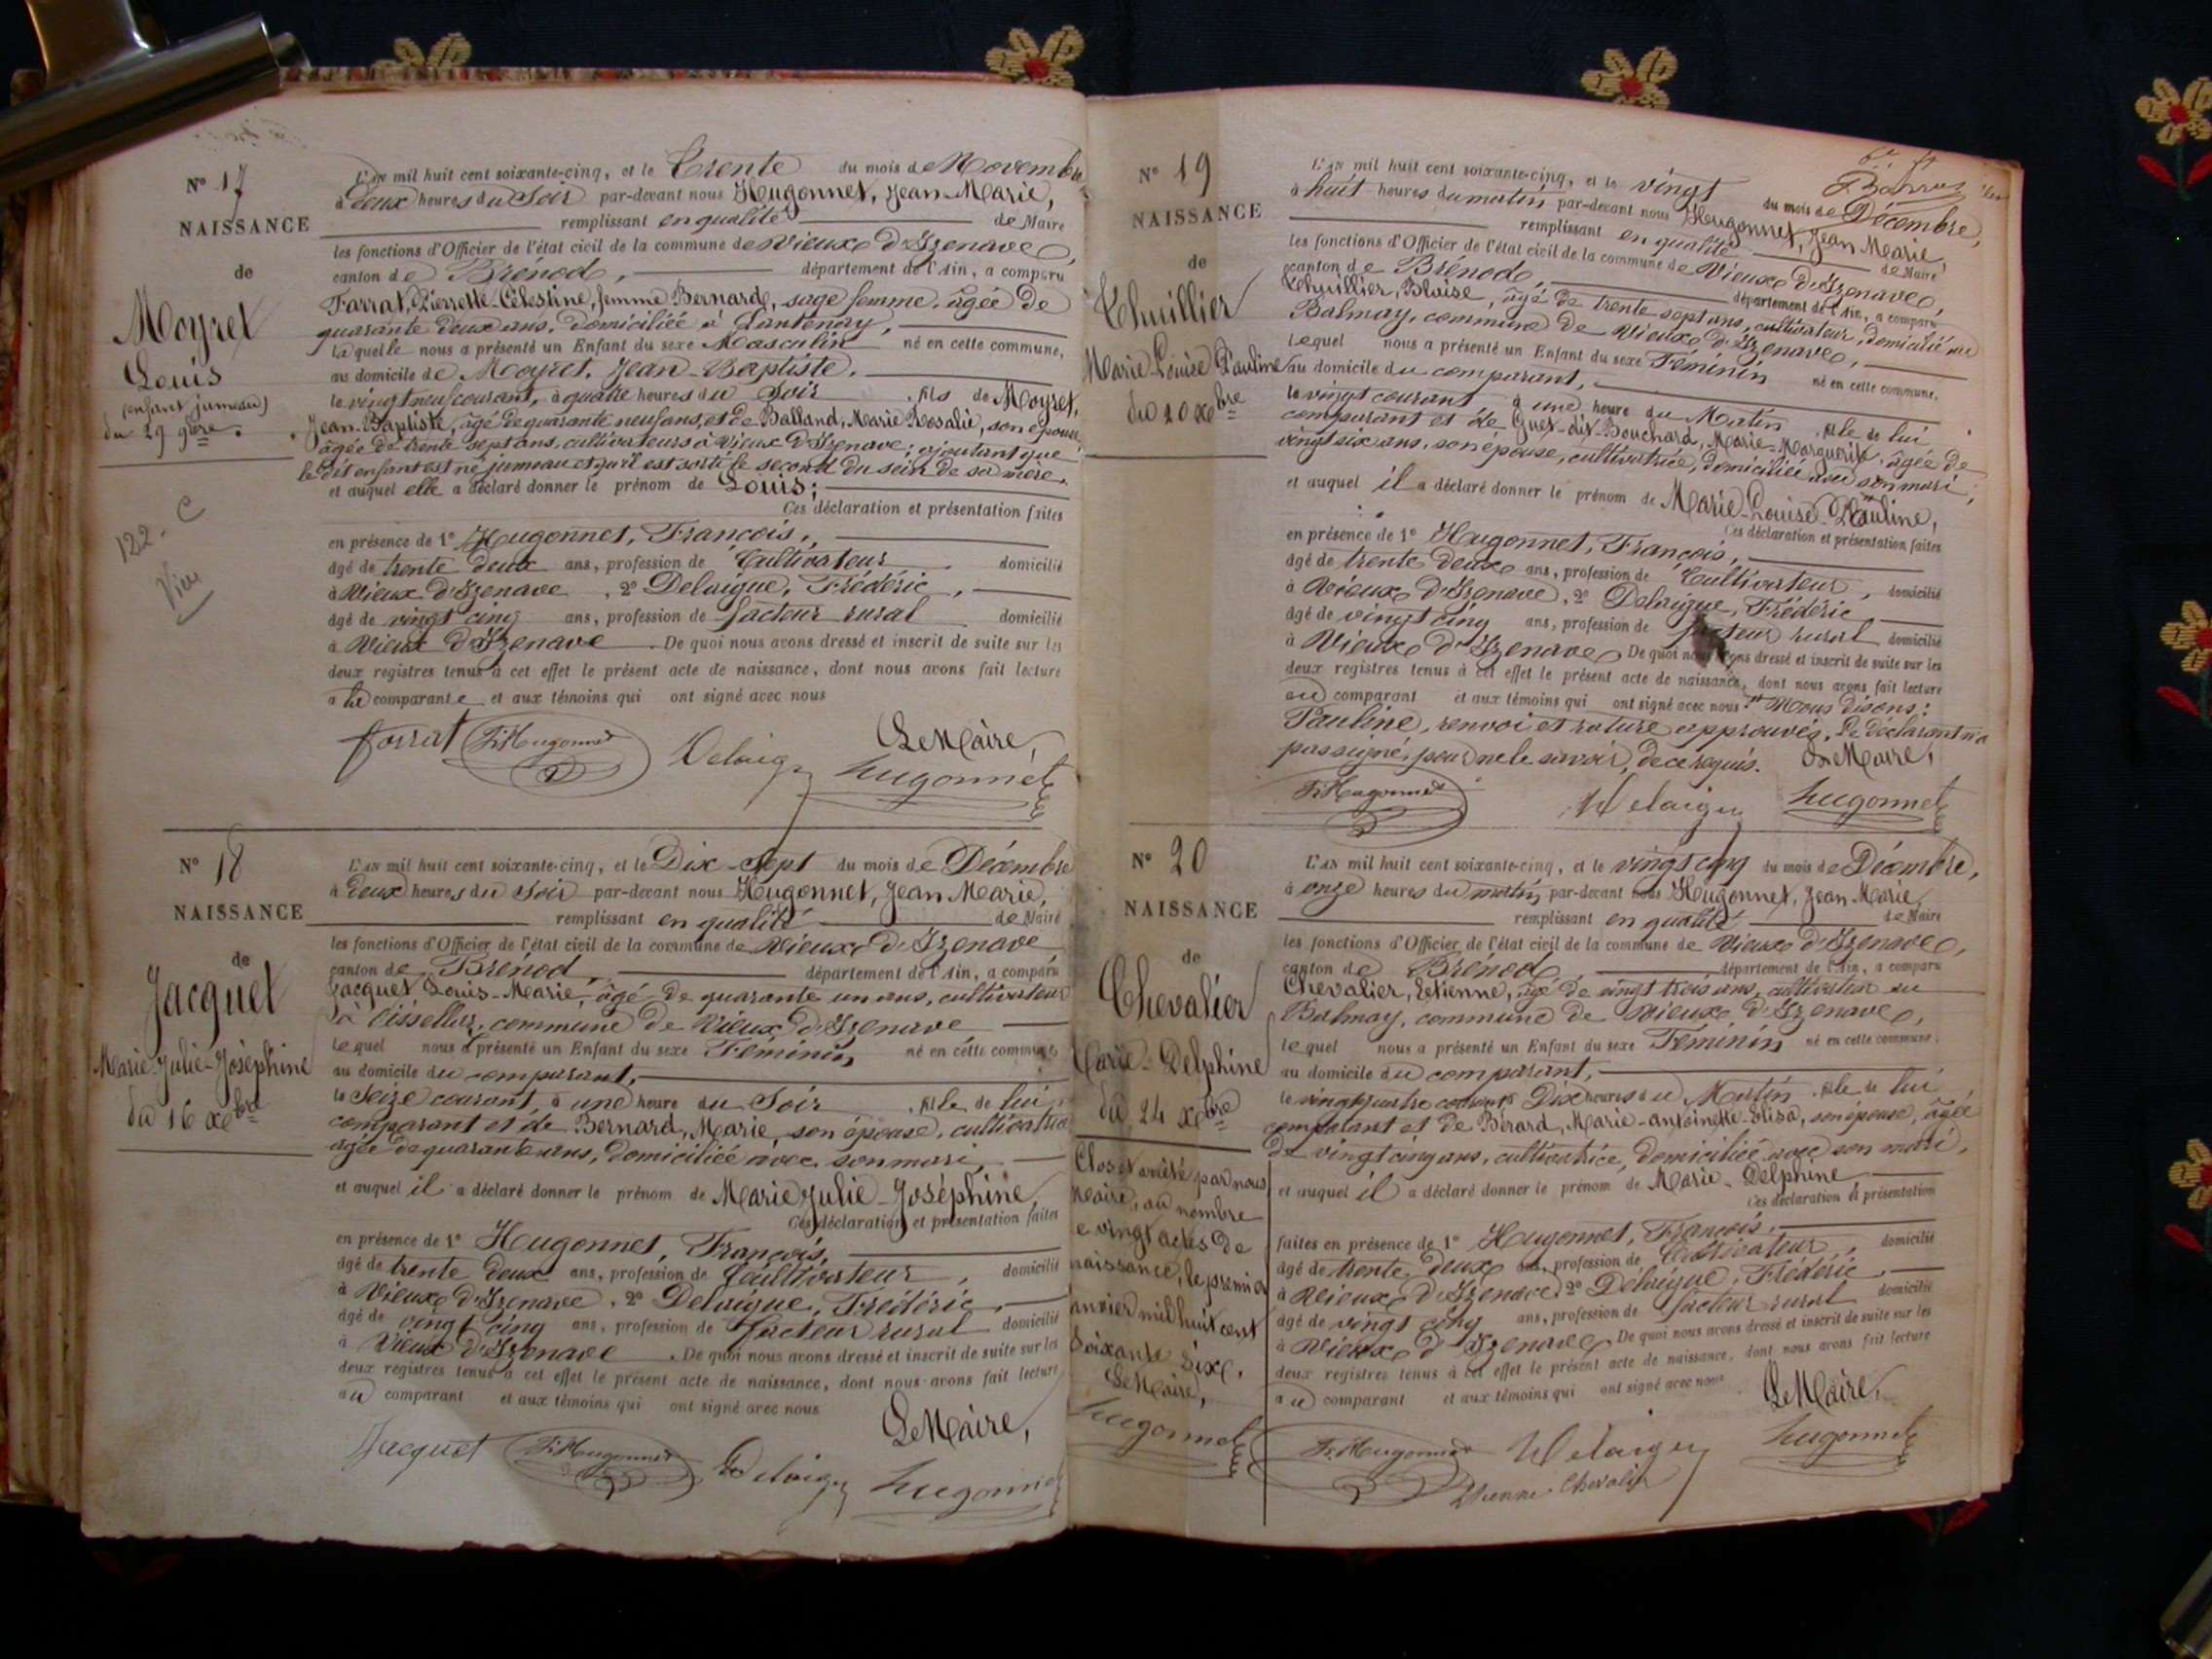 N° 17
NAISSANCE
de
Moyret
Louis
(enfant jumeau)
du 29 9bre.
122. C
L'AN mil huit cent soixante-cinq, et le Trente du mois de Novembre
à deux heures du Soir par-devant nous Hugonnet, Jean-Marie,
remplissant en qualité de Maire
les fonctions d'Officier de l'état civil de la commune de Vieux d'Izenave,
canton de Brénod, département de l'Ain, a comparu
Farrat, Pierrette-Célestine, femme Bernard, sage femme, âgée de
quarante deux ans, domiciliée à Lantenay,
laquelle nous a présenté un Enfant du sexe Masculin né en cette commune,
au domicile de Moyret, Jean-Baptiste.
le vingt neuf courant, à quatre heures du Soir, fils de Moyret,
Jean-Baptiste, âgé de quarante neuf ans, et de Balland, Marie Rosalie, son épouse
âgée de trente sept ans, cultivateurs à Vieux d'Izenave; ajoutant que
le dit enfant est né jumeau et qu'il est sorti le second du sein de sa mère,
et auquel elle a déclaré donner le prénom de Louis;
Ces déclaration et présentation faites
en présence de 1° Hugonnet, François,
âgé de trente deux ans, profession de Cultivateur domicilié
à Vieux d'Izenave, 2° Delaigue, Frédéric,
âgé de vingt cinq ans, profession de facteur rural domicilié
à Vieux d'Izenave. De quoi nous avons dressé et inscrit de suite sur les
deux registres tenus à cet effet le présent acte de naissance, dont nous avons fait lecture
a la comparante et aux témoins qui ont signé avec nous
Le Maire,
farrat Fs Hugonnet Delaigue hugonnet
N° 18
NAISSANCE
de
Jacquet
Marie-Julie-Joséphine
du 16 xbre
L'AN mil huit cent soixante-cinq, et le Dix-Sept du mois de Décembre
à deux heures du Soir par-devant nous Hugonnet, Jean Marie,
remplissant en qualité de Maire
les fonctions d'Officier de l'état civil de la commune de Vieux d'Izenave
canton de Brénod, département de l'Ain, a comparu
Jacquet Louis-Marie, âgé de quarante un ans, cultivateur
à Cisselles, commune de Vieux d'Izenave
lequel nous a présenté un Enfant du sexe Féminin né en cette commune,
au domicile du comparant,
le Seize courant, à une heure du Soir, fille de lui
comparant et de Bernard, Marie, son épouse, cultivatrice
âgée de quarante ans, domiciliée avec son mari,
et auquel il a déclaré donner le prénom de Marie Julie-Joséphine,
Ces déclaration et présentation faites
en présence de 1° Hugonnet, François,
âgé de trente deux ans, profession de Cultivateur, domicilié
à Vieux d'Izenave, 2° Delaigue, Frédéric,
âgé de vingt cinq ans, profession de facteur rural domicilié
à Vieux d'Izenave. De quoi nous avons dressé et inscrit de suite sur les
deux registres tenus à cet effet le présent acte de naissance, dont nous avons fait lecture
au comparant et aux témoins qui ont signé avec nous
Le Maire,
Jacquet Fs Hugonnet Delaigue hugonnet
N° 19
NAISSANCE
de
Thuillier
Marie-Louise Pauline
du 20 xbre
L'AN mil huit cent soixante-cinq, et le vingt du mois de Décembre,
à huit heures du matin par-devant nous Hugonnet, Jean Marie,
remplissant en qualité de Maire
les fonctions d'Officier de l'état civil de la commune de Vieux d'Izenave,
canton de Brénod, département de l'Ain, a comparu
Thuillier, Blaise, âgé de trente sept ans, cultivateur, domicilié au
Balmay, commune de Vieux d'Izenave,
lequel nous a présenté un Enfant du sexe Féminin né en cette commune,
au domicile du comparant,
le vingt courant à une heure du Matin, fille de lui
comparant et de Guet-dit-Bouchard, Marie-Marguerite, âgée de
vingt six ans, son épouse, cultivatrice, domiciliée avec son mari,
et auquel il a déclaré donner le prénom de Marie-Louise-Pauline,
Ces déclaration et présentation faites
en présence de 1° Hugonnet, François,
âgé de trente deux ans, profession de Cultivateur, domicilié
à Vieux d'Izenave, 2° Delaigue, Frédéric
âgé de vingt cinq ans, profession de facteur rural domicilié
à Vieux d'Izenave De quoi nous avons dressé et inscrit de suite sur les
deux registres tenus à cet effet le présent acte de naissance, dont nous avons fait lecture
au comparant et aux témoins qui ont signé avec nous. Nous disons:
Pauline, renvoi et rature approuvés. Le déclarant n'a
pas signé, pour ne le savoir, de ce requis. Le Maire,
Fs Hugonnet Delaigue hugonnet
N° 20
NAISSANCE
de
Chevalier
Marie-Delphine
du 24 xbre
Clos et arrêté par nous
Maire, au nombre
de vingt actes de
naissance, le premier
janvier mil huit cent
soixante Six.
Le Maire,
hugonnet
L'AN mil huit cent soixante-cinq, et le vingt cinq du mois de Décembre,
à onze heures du matin par-devant nous Hugonnet, Jean-Marie,
remplissant en qualité de Maire
les fonctions d'Officier de l'état civil de la commune de Vieux d'Izenave,
canton de Brénod département de l'Ain, a comparu
Chevalier, Etienne, âgé de vingt trois ans, cultivateur au
Balmay, commune de Vieux d'Izenave,
lequel nous a présenté un Enfant du sexe Féminin né en cette commune,
au domicile du comparant,
le vingt quatre courant à Dix heures du Matin, fille de lui
comparant et de Bérard, Marie-antoinette-Elisa, son épouse, âgée
de vingt cinq ans, cultivatrice, domiciliée avec son mari,
et auquel il a déclaré donner le prénom de Marie-Delphine
Ces déclaration et présentation
faites en présence de 1° Hugonnet, François,
âgé de trente deux ans, profession de Cultivateur, domicilié
à Vieux d'Izenave, 2° Delaigue, Frédéric,
âgé de vingt cinq ans, profession de facteur rural domicilié
à Vieux d'Izenave De quoi nous avons dressé et inscrit de suite sur les
deux registres tenus à cet effet le présent acte de naissance, dont nous avons fait lecture
au comparant et aux témoins qui ont signé avec nous.
Le Maire,
Fs Hugonnet Delaigue hugonnet
Etienne Chevalier